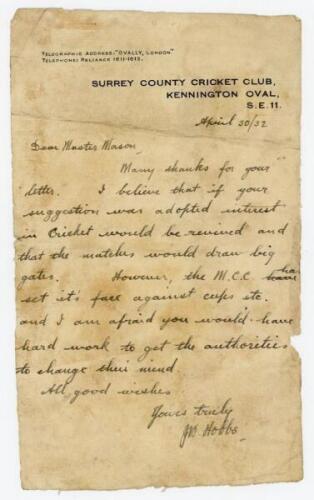 TELEGRAPHIC ADDRESS: "OVALLY, LONDON"
TELEPHONE: RELIANCE 1811-1812.
SURREY COUNTY CRICKET CLUB,
KENNINGTON OVAL,
S.E. 11.
April 30/32
Dear Master Mason,
Many thanks for your
letter. I believe that if your
suggestion was adopted interest
in Cricket would be revived and
that the matches would draw big
gates. However, the M.C.C. have has
set it's face against cups etc.
and I am afraid you would have
hard work to get the authorities
to change their mind.
All good wishes
Yours truly
JB. Hobbs.